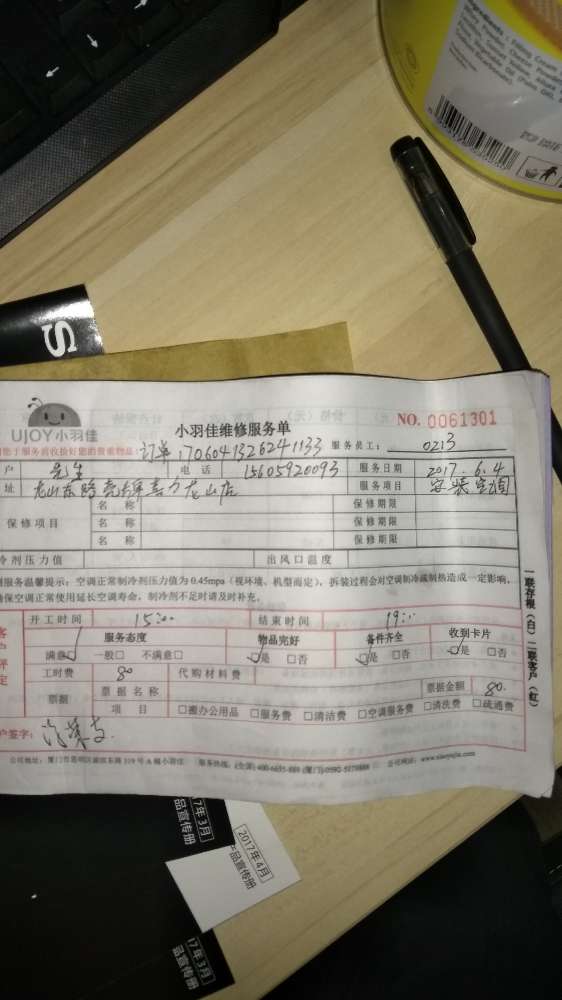 Ingredients :
S
UJOY小羽佳
小羽佳维修服务单
NO. 0061301
订单1706041326241133 服务员工： 0213
户 先生 电 话 15605920093 服务日期 2017.6.4
址 服务项目
保修项目
名 称 保修期限
名 称 保修期限
名 称 保修期限
冷剂压力值 出风口温度
服务温馨提示：空调正常制冷剂压力值为0.45mpa（视环境、机型而定），拆装过程会对空调制冷或制热造成一定影响，
确保空调正常使用延长空调寿命，制冷剂不足时请及时补充。
开工时间 15:00 结束时间 19:00
服务态度 物品完好 备件齐全 收到卡片
满意☑ 一般□ 不满意□ ☑是 □否 ☑是 □否 ☑是 □否
工时费 80 代购材料费
票据 票据名称 票据金额 80.
项 目 □搬办公用品 □服务费 □清洁费 □空调服务费 □清洗费 □疏通费
户签字：
一联存根（白） 二联客户（红）
2017年4月
产品宣传册
17年3月
品宣传册
17年3月
品宣传册